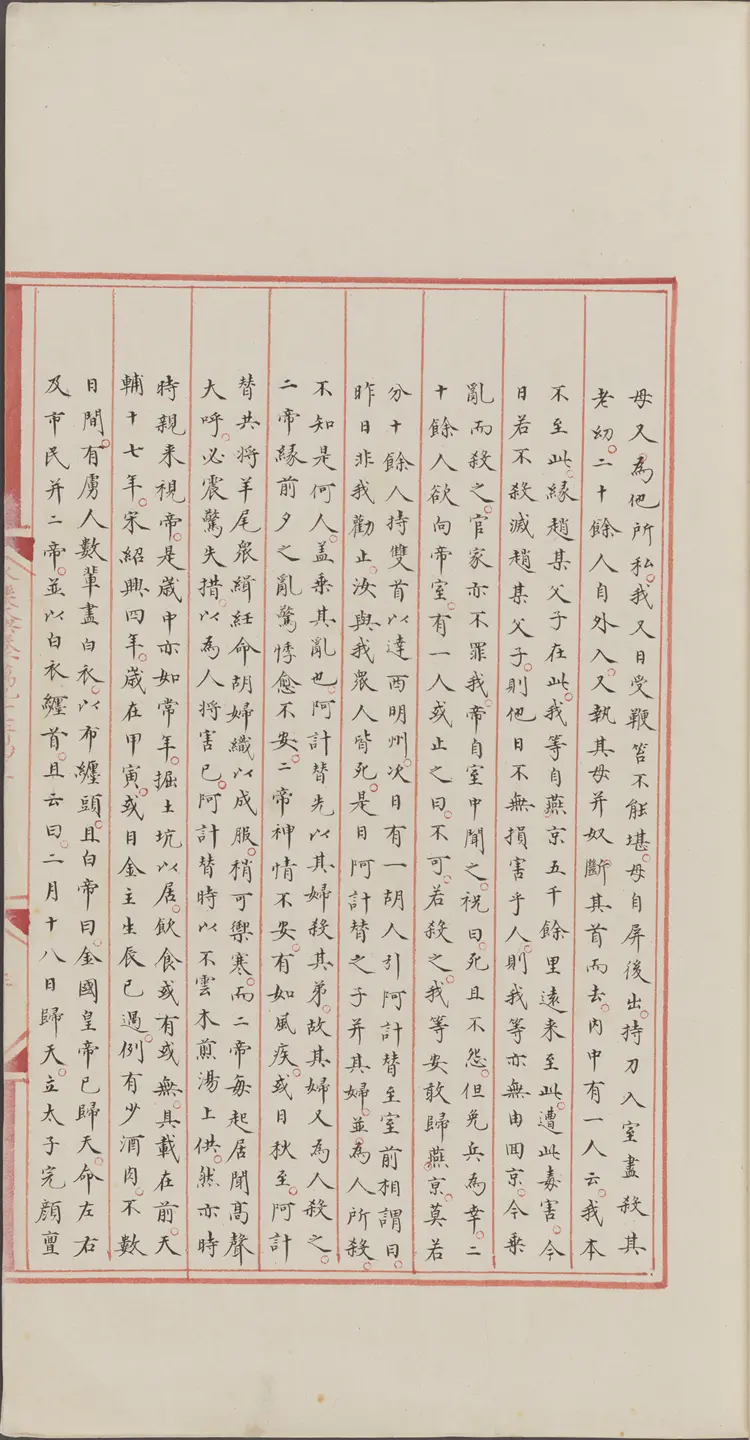 母又為他所私。我又日受鞭笞不能堪。母自屏後出。持刀入室盡殺其
老幼。二十餘人自外入。又執其母并奴斷其首而去。內中有一人云。我本
不至此。緣趙某父子在此。我等自燕京五千餘里遠来至此。遭此毒害。今
日若不殺滅趙某父子。則他日不無損害乎人。則我等亦無由囬京。今乗
亂而殺之。官家亦不罪我。帝自室中聞之。祝曰。死且不怨。但免兵為幸。二
十餘人欲向帝室。有一人或止之曰。不可。若殺之。我等安敢歸燕京。莫若
分十餘人持雙首以達西明州。次日有一胡人引阿計替至室前相謂曰。
昨日非我勸止。汝與我眾人皆死。是日阿計替之子并其婦。並為人所殺。
不知是何人。盖乗其亂也。阿計替先以其婦殺其弟。故其婦又為人殺之。
二帝緣前夕之亂驚悸愈不安。二帝神情不安。有如風疾。或日秋至。阿計
替共將羊尾眾緝紝命胡婦織以成服。稍可禦寒。而二帝每起居聞髙聲
大呼。必震驚失措。以為人将害已。阿計替時以不雲木煎湯上供。然亦時
時親来視帝。是歲中亦如常年。掘土坑以居。飲食或有或無。具載在前。天
輔十七年。宋紹興四年。歲在甲寅。或日金主生辰已過。例有少酒肉。不數
日間。有虜人數輩盡白衣。以布纏頭。且白帝曰。金國皇帝已歸天。命左右
及市民并二帝。並以白衣纏首。且云曰。二月十八日歸天。立太子完顔亶